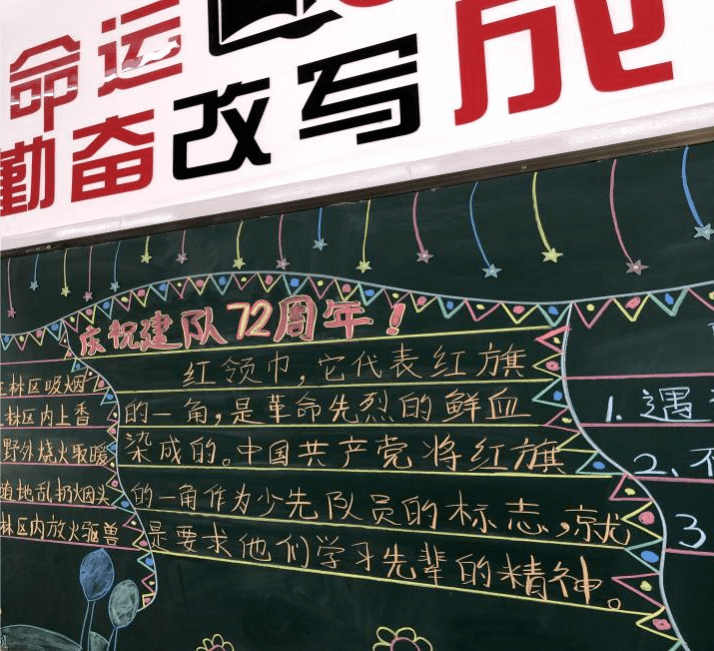 命运
成
勤奋改写
庆祝建队72周年！
红领巾，它代表红旗
的一角，是革命先烈的鲜血
染成的。中国共产党将红旗
的一角作为少先队员的标志，就
是要求他们学习先辈的精神。
林区吸烟
林区内上香
野外烧火取暖
随地乱扔烟头
林区内放火驱兽
1. 遇
2、
3